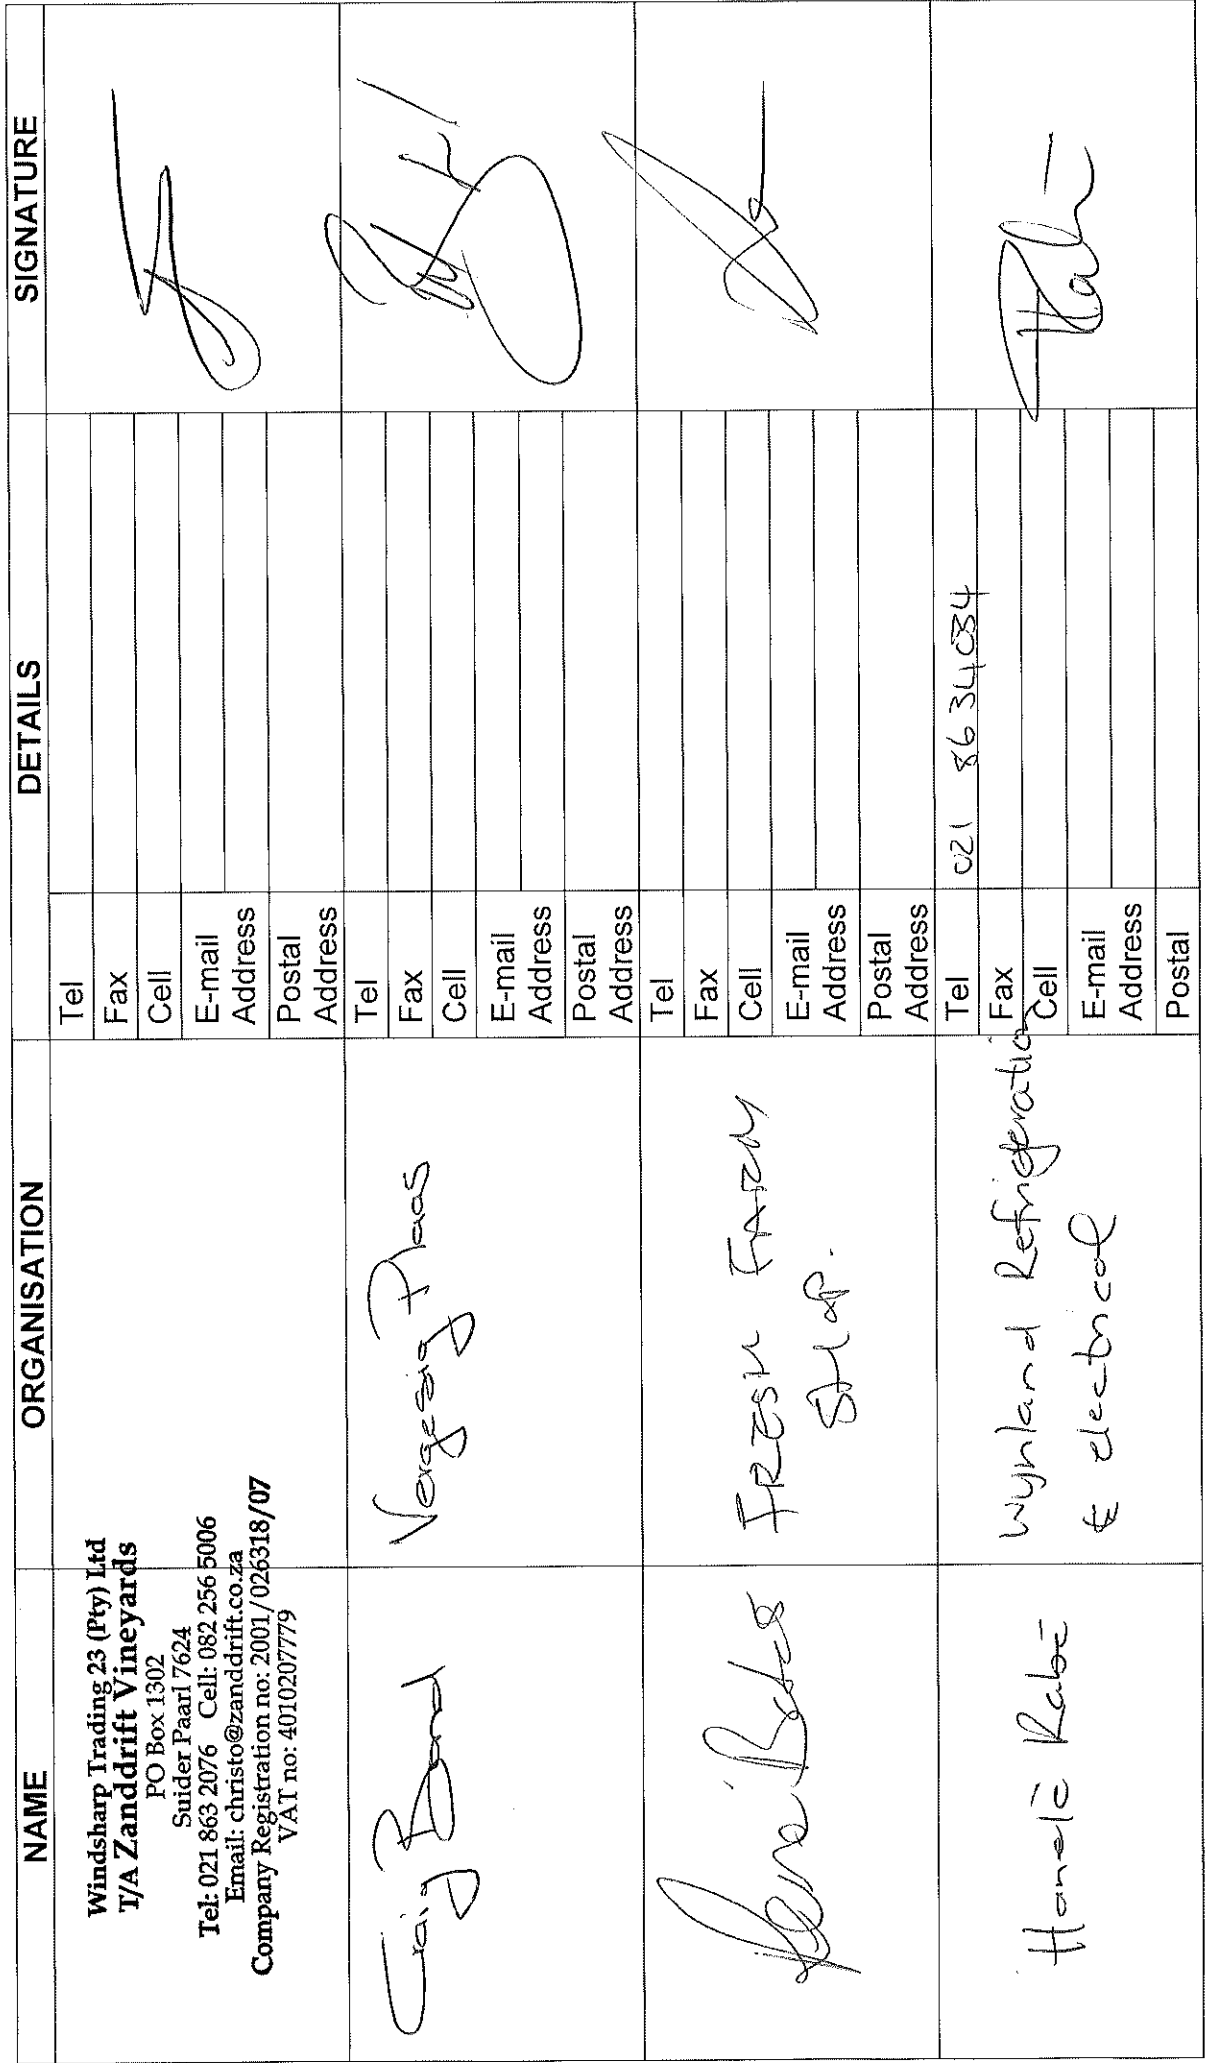 NAME
ORGANISATION
DETAILS
SIGNATURE
Windsharp Trading 23 (Pty) Ltd
T/A Zanddrift Vineyards
PO Box 1302
Suider Paarl 7624
Tel: 021 863 2076 Cell: 082 256 5006
Email: christo@zanddrift.co.za
Company Registration no: 2001/026318/07
VAT no: 4010207779
Tel
Fax
Cell
E-mail
Address
Postal
Address
Craig
Plaas
Tel
Fax
Cell
E-mail
Address
Postal
Address
FRESH FARM
SHOP.
Tel
Fax
Cell
E-mail
Address
Postal
Address
Hanelè Rabé
Wynland Refrigeration
& electrical
Tel
021 8634034
Fax
Cell
E-mail
Address
Postal